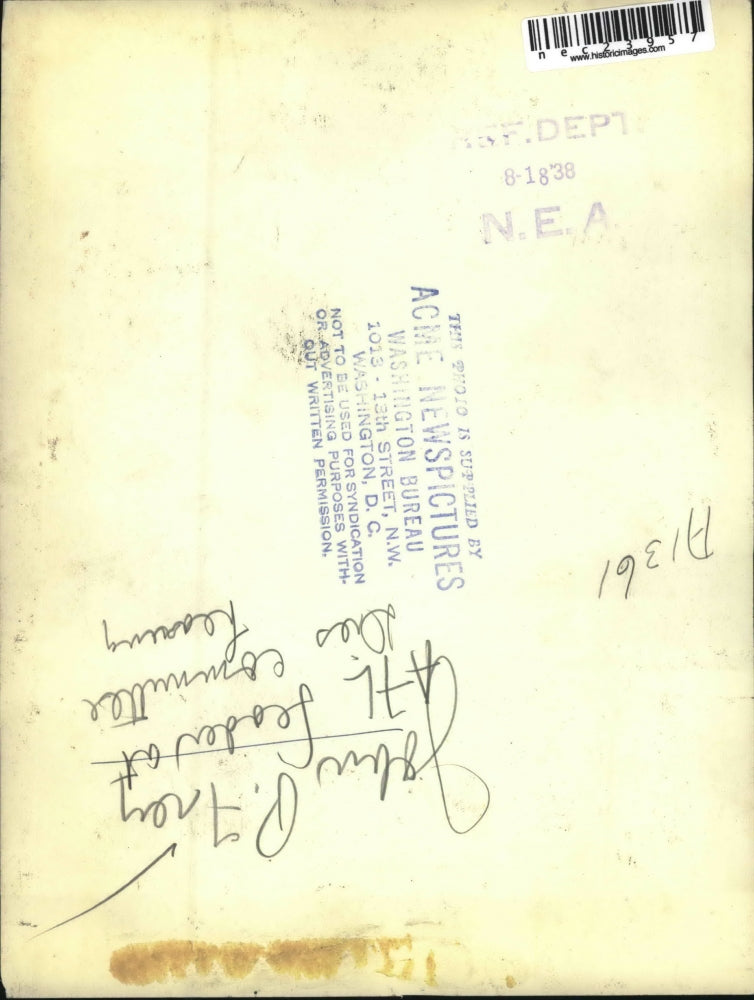 nec23957
www.historicimages.com
REF. DEPT.
8-18'38
N.E.A.
THIS PHOTO IS SUPPLIED BY
ACME NEWSPICTURES
WASHINGTON BUREAU
1013 - 13th STREET, N.W.
WASHINGTON, D. C.
NOT TO BE USED FOR SYNDICATION
OR ADVERTISING PURPOSES WITH-
OUT WRITTEN PERMISSION.
A1361
John P. Frey
AFL. Leader at
Dies committee
hearing